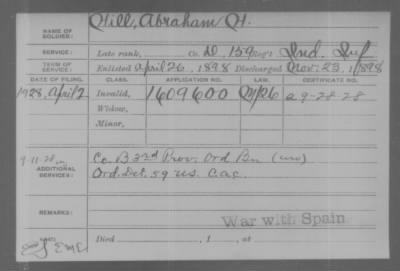 NAME OF SOLDIER: Hill, Abraham H.
SERVICE: Late rank, Co. D, 159 Reg't Ind. Inf
TERM OF SERVICE: Enlisted April 26, 1898 Discharged Nov. 23, 1898
DATE OF FILING. CLASS. APPLICATION NO. LAW. CERTIFICATE NO.
1928, April 2 Invalid, 1609600
Widow,
Minor,
9-11-28
ADDITIONAL SERVICES: Co. B 32d Prov. Ord Bn
Ord. Det. 59 U.S. C.A.C.
REMARKS:
War with Spain
Died , 1 , at